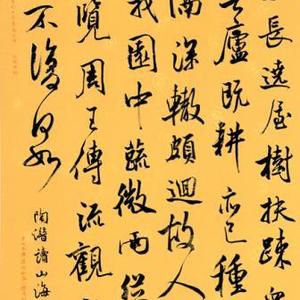 長遶屋樹扶疎衆
廬既耕亦已種
深轍頗迴故人
我園中蔬微雨從
覽周王傳流觀
不復何如
陶潛讀山海